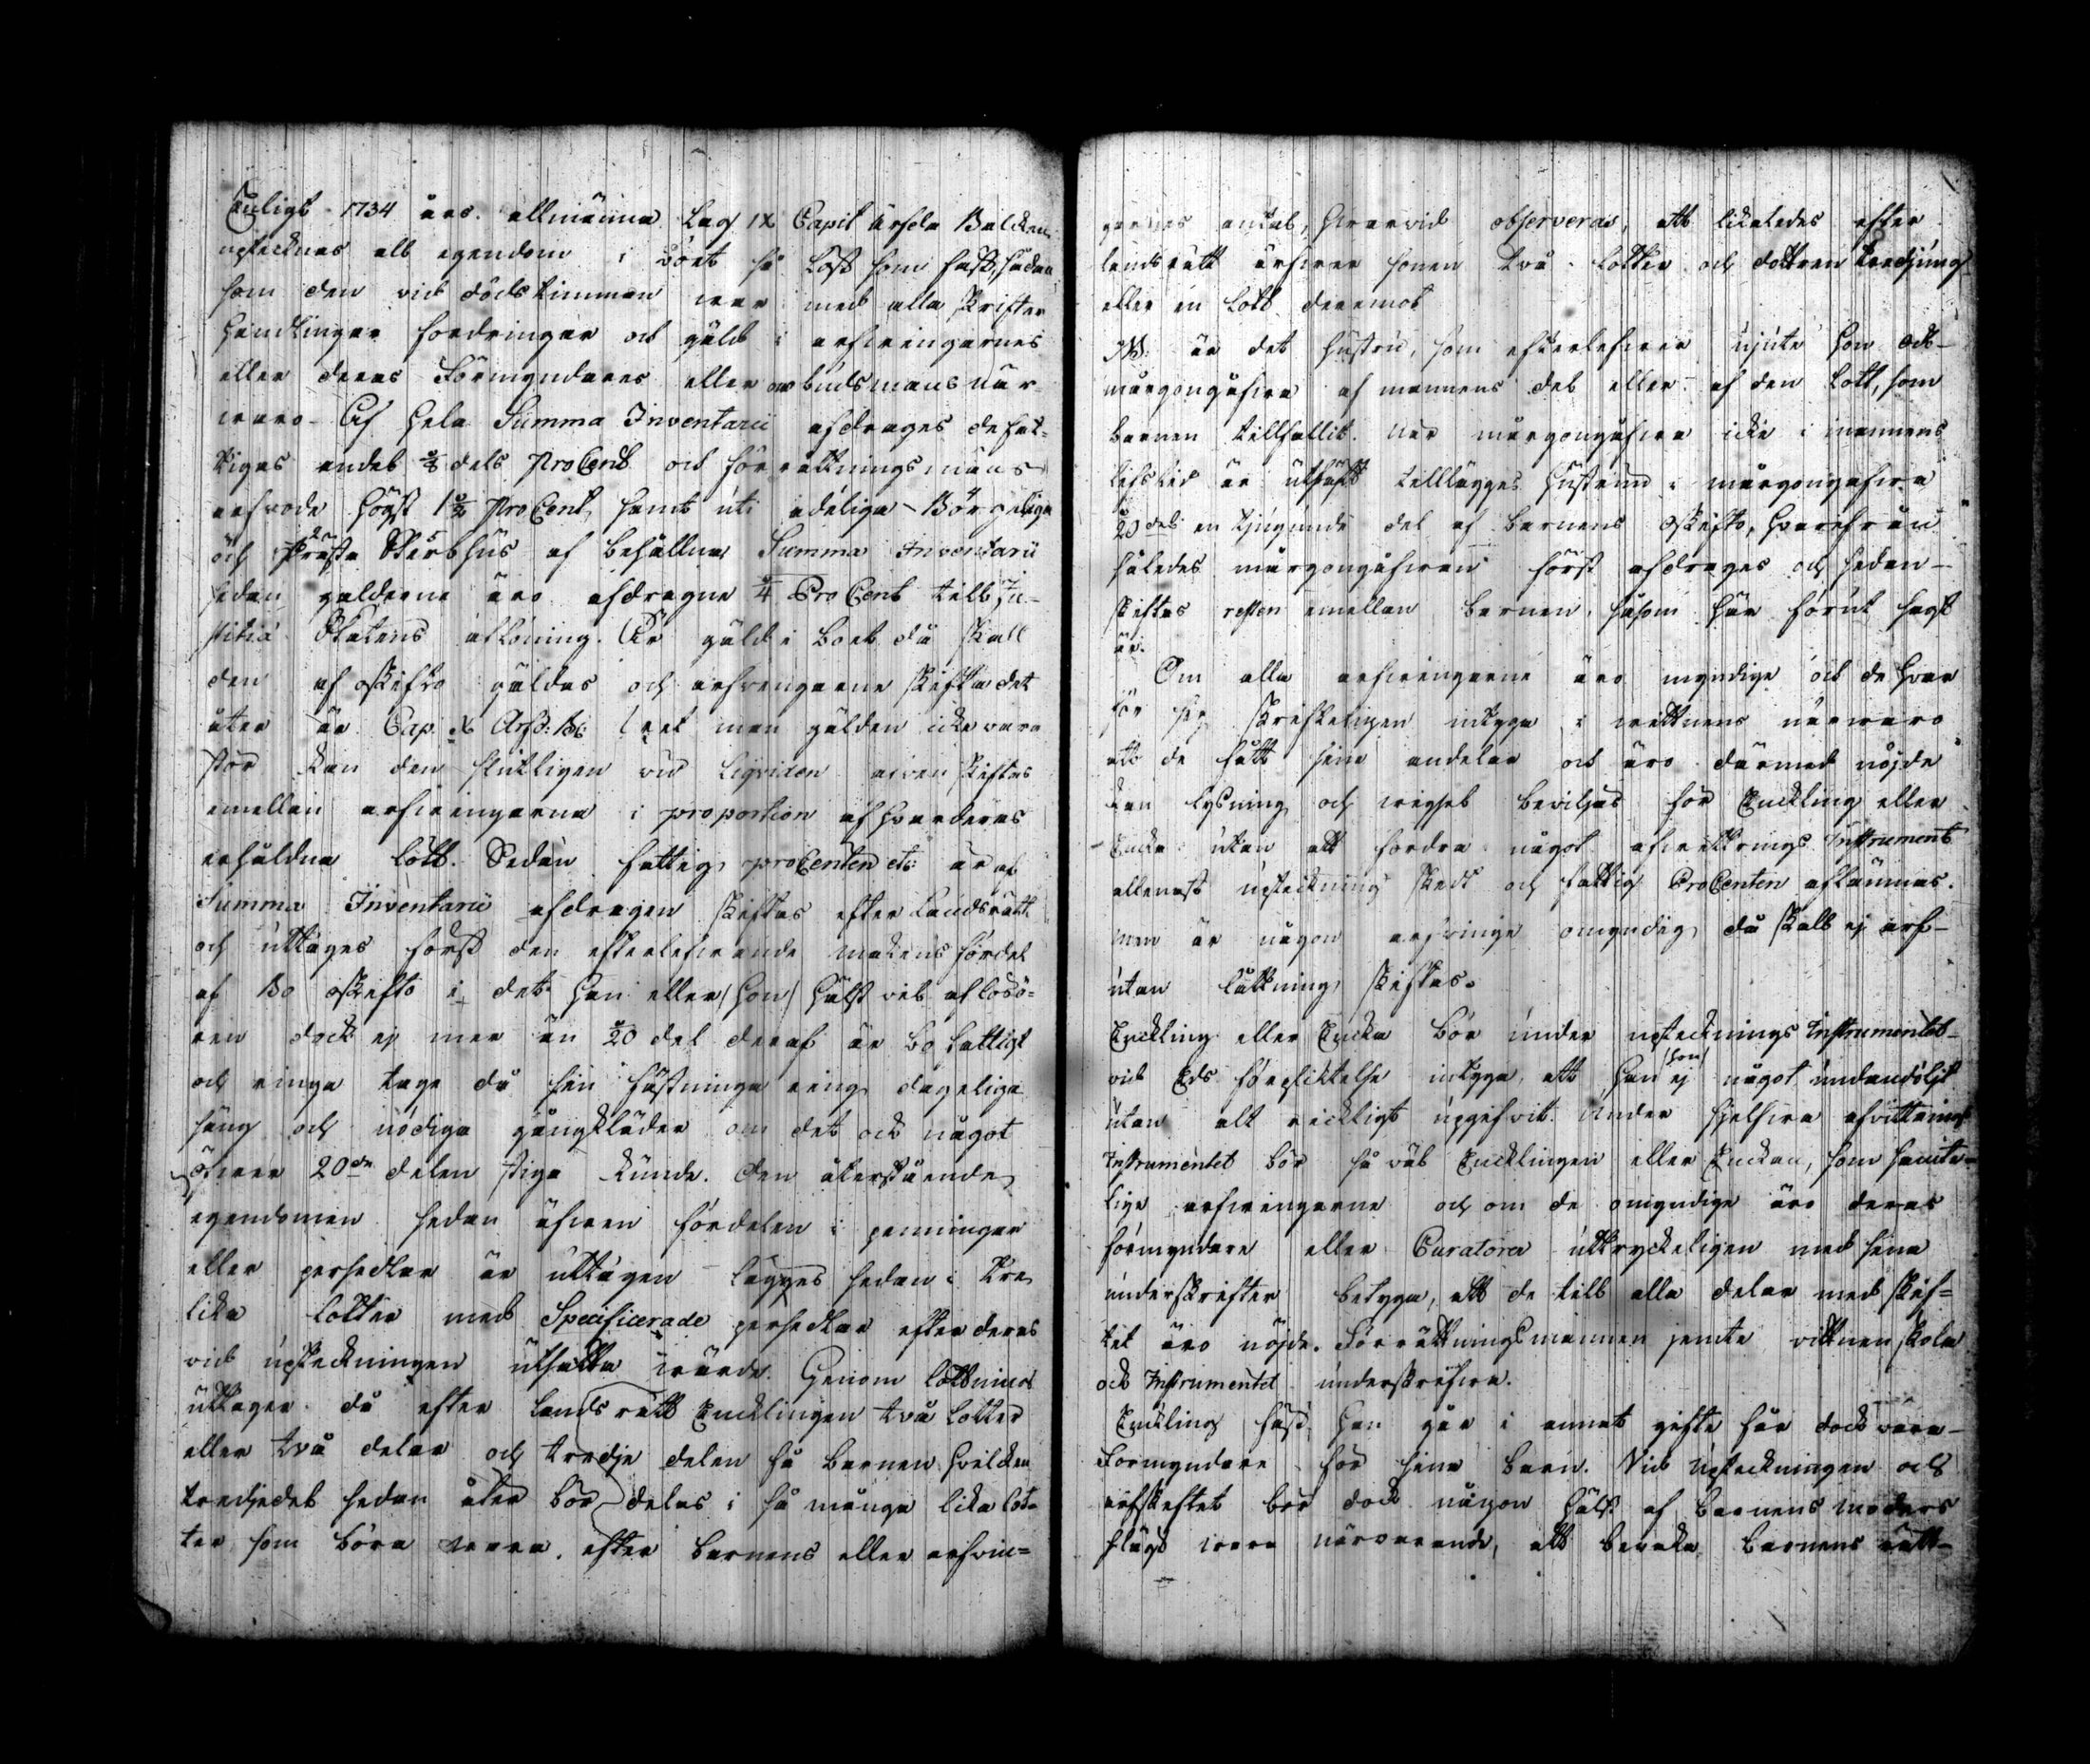 Enligt 1734 års allmänna Lag IX Capit Ärfda Balcken
upteknas all egendom i boet så löst som fast, sådan
som den vid dödstimman war med alla skrifter
handlingar fordringar och gäld i arfwingarnes
eller deras Förmyndares eller ombudsmans när-
waro. Af hela Summa Inventarii afdrages de fat-
tigas andel 1/8 dels ProCent och förrättningsmäns
arfwode högst 1 1/2 ProCent, samt uti adeliga Börgerliga
och Prästa Sterbhus af behållna Summa Inventarii
sedan gälderne äro afdragne 1/4 ProCent till Ju-
stitiæ Statens aflöning. Är gäld i boet då skall
den af oskifto gäldas och arfwingarne skifta det
åter är Cap. X Ärfd: B: men gälden icke vara
stor kan den slutligen vid liqviden äfven skiftas
emellan arfwingarna i proportion af hvarderas
erhåldna lott. Sedan fattig proCenten etc är af
Summa Inventarii afdragen skiftas efter Landsrätt
och uttages först den efterlefwande makens fördel
af Bo oskifto i det han eller /hon/ hälst vil af lösö-
ren dock ej mer än 1/20 del deraf är bo fattigt
och ringa tage då sin fästninga ring dageliga
säng och nödiga gångkläder om det ock något
öfwer 20de delen stiga kunde. Den återstående
egendomen sedan äfwen fördelen i penningar
eller persedlar är uttagen lägges sedan i tre
lika lotter med Specificerade persedlar efter deras
vid upteckningen utsatta wärde. Genom lottning
uttager då efter landsrätt Encklingen två lotter
eller två delar och tredje delen få barnen hvilken
tredjedel sedan åter bör delas i så många lika lot-
ter som böra wara, efter barnens eller arfwin-
garnes antal, hwarvid observeras, att likaledes efter
landsrätt ärfwer sonen två lotter och dottren tredjung
eller en lott deremot
NB. är det hustru, som efterlefwer niute hon ock
morgongåfwa af mannens del eller af den lott, som
barnen tillfallit. När morgongåfwa icke i mannens
lifstid är utfäst tilllägges hustrun i morgongåfwa
1/20 del en tjugunde del af barnens oskifto, hwarifrån
således morgongåfwan först afdrages och sedan
skiftas resten emellan barnen, såsom här förut sagt
är.
Om alla arfwingarne äro myndige och de hvar
för sig skrifteligen intyga i wittnens närwaro
att de fått sina andelar och äro därmed nöjde
kan lysning och wigsel beviljas för Enckling eller
Encka utan att fordra något afwittrings Instrument
allenast upteckning skedt och fattig ProCenten aflämnas.
men är någon arfwinge omyndig då skall ej arf
utan lottning skiftas.
Enckling eller Encka bör under uptecknings Instrumentet
vid Eds förpliktelse intyga att han /hon/ ej något undandöljt
utan alt ricktigt uppgifvit. Under sjelfwa afvittrings
Instrumentet bör så wäl Encklingen eller Enckan, som samte-
lige arfwingarne och om de omyndige äro deras
förmyndare eller Curatorer uttryckeligen med sina
underskrifter betyga, att de till alla delar med skif-
tet äro nöjde. Förrättningsmannen jemte vittnen skola
ock Instrumentet underskrifwa.
Enckling fast han går i annat gifte får dock vara
Förmyndare för sina barn. Vid upteckningen och
arfskiftet bör dock någon hälst af barnens moders
slägt wara närvarande, att bevaka barnens rätt